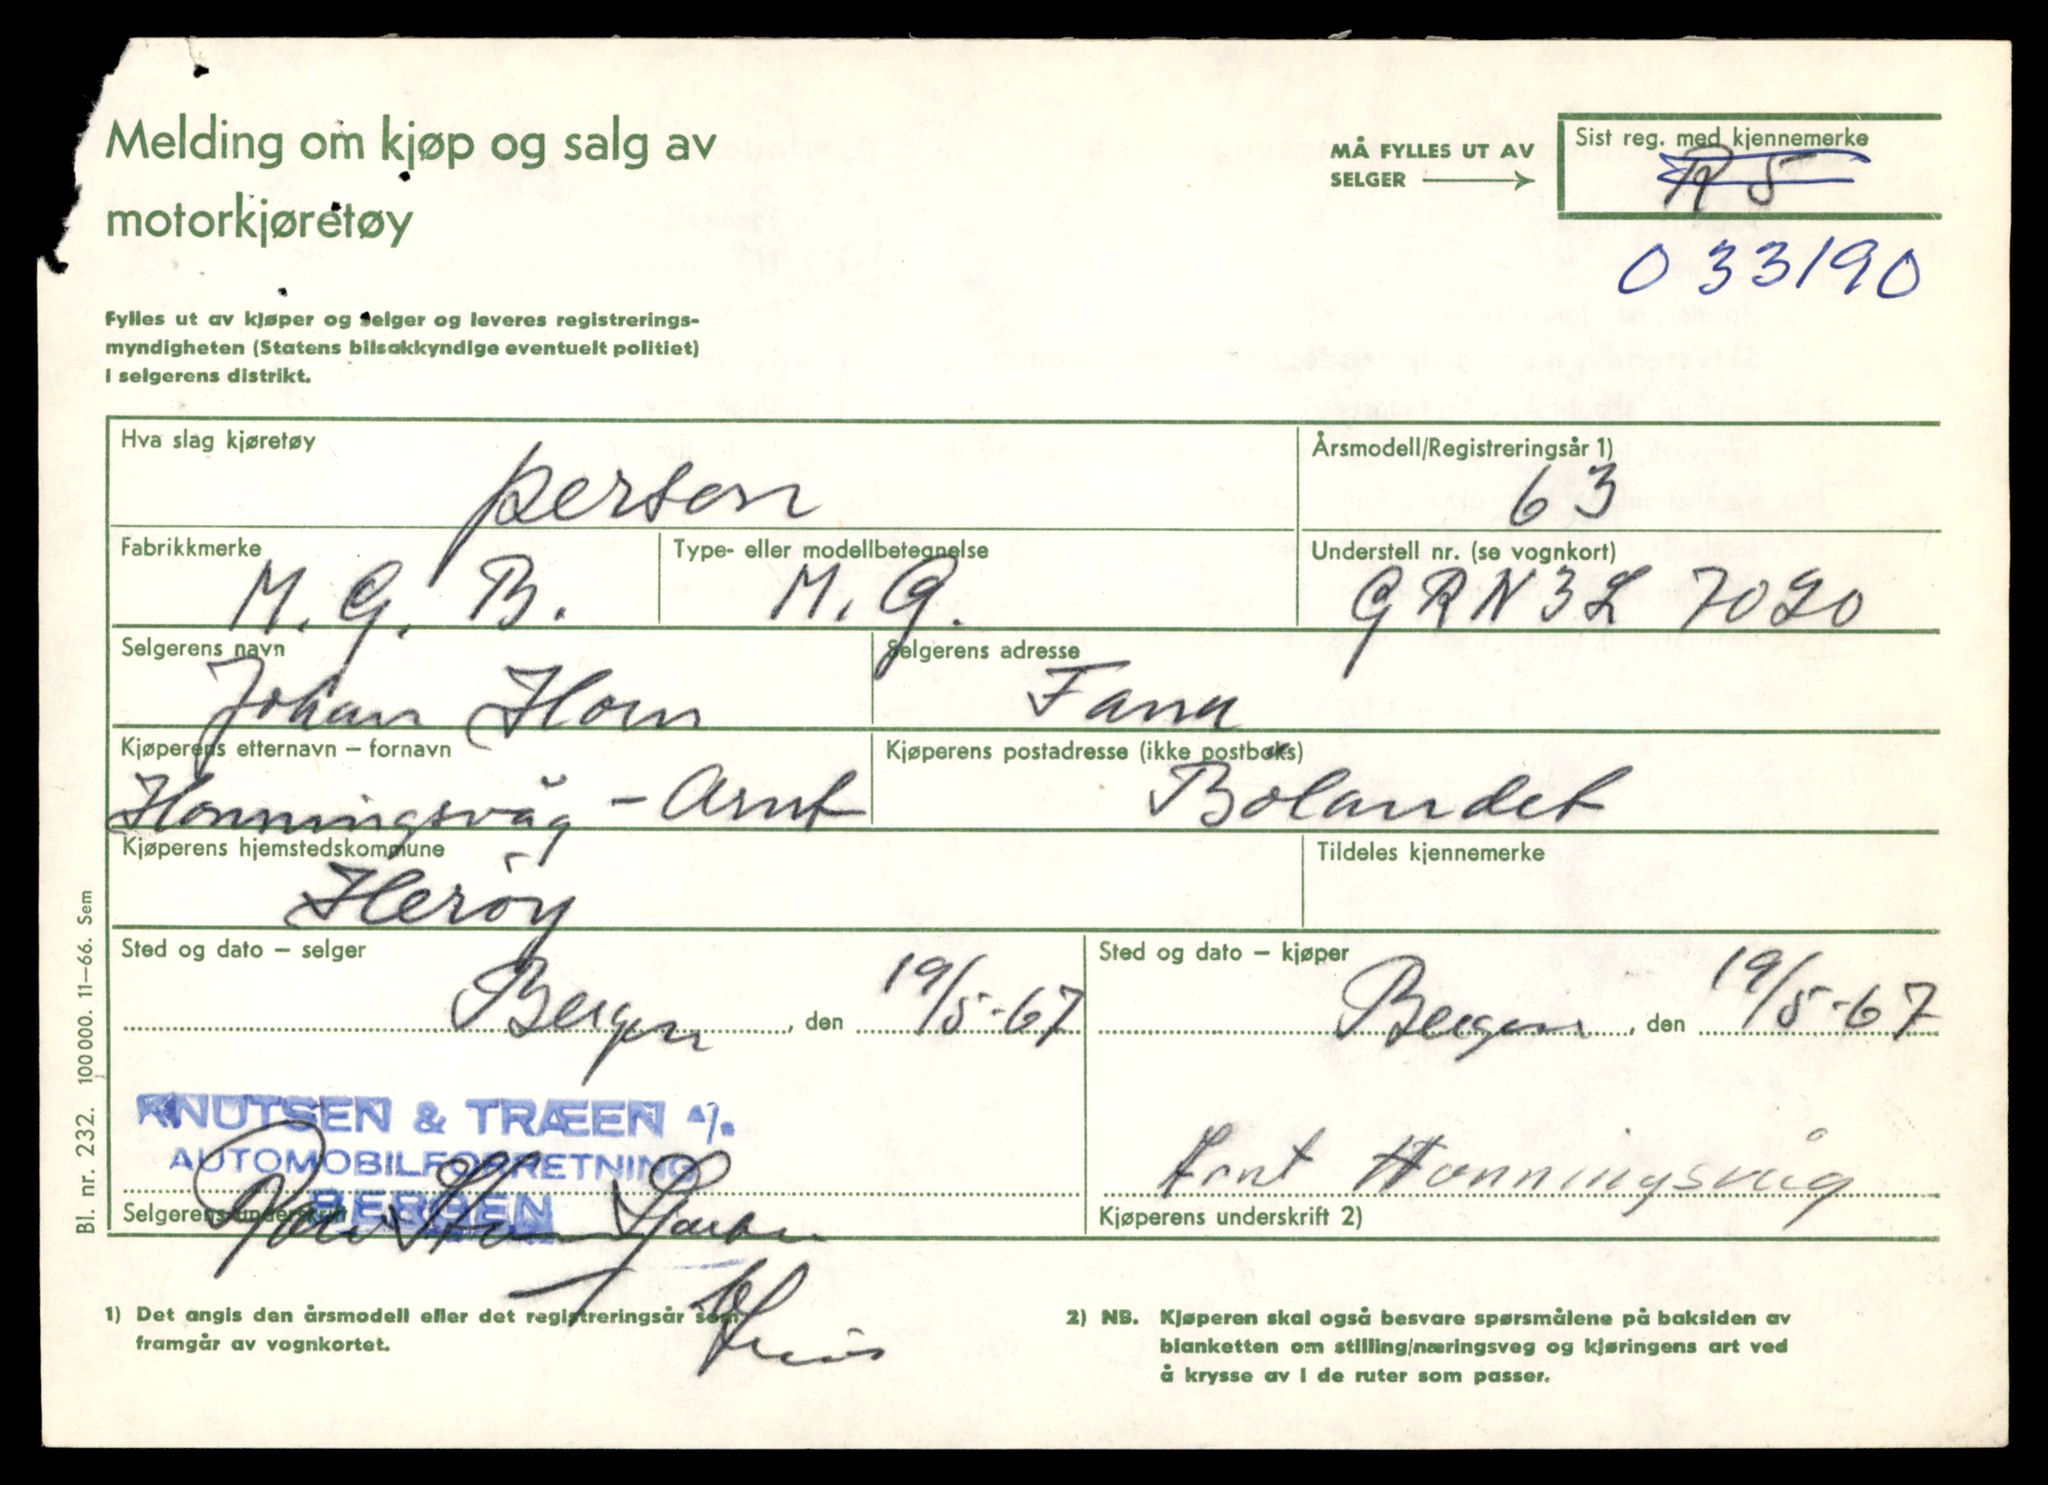 Melding om kjøp og salg av
motorkjøretøy
MÅ FYLLES UT AV
SELGER
Sist reg. med kjennemerke
R 5
033190
Fylles ut av kjøper og selger og leveres registrerings-
myndigheten (Statens bilsakkyndige eventuelt politiet)
i selgerens distrikt.
Hva slag kjøretøy
person
Årsmodell/Registreringsår 1)
63
Fabrikkmerke
M. G. B.
Type- eller modellbetegnelse
M. G.
Understell nr. (se vognkort)
GRN3L 7020
Selgerens navn
Johan Horn
Selgerens adresse
Fana
Kjøperens etternavn – fornavn
Honningsvåg – Arnt
Kjøperens postadresse (ikke postboks)
Bolandet
Kjøperens hjemstedskommune
Herøy
Tildeles kjennemerke
Sted og dato – selger
Bergen, den 19/5-67
Sted og dato – kjøper
Bergen, den 19/5-67
KNUTSEN & TRÆEN A/S.
AUTOMOBILFORRETNING
BERGEN
Selgerens underskrift
Arnt Honningsvåg
Kjøperens underskrift 2)
1) Det angis den årsmodell eller det registreringsår som
framgår av vognkortet.
2) NB. Kjøperen skal også besvare spørsmålene på baksiden av
blanketten om stilling/næringsveg og kjøringens art ved
å krysse av i de ruter som passer.
Bl. nr. 232. 100 000. 11–66. Sem